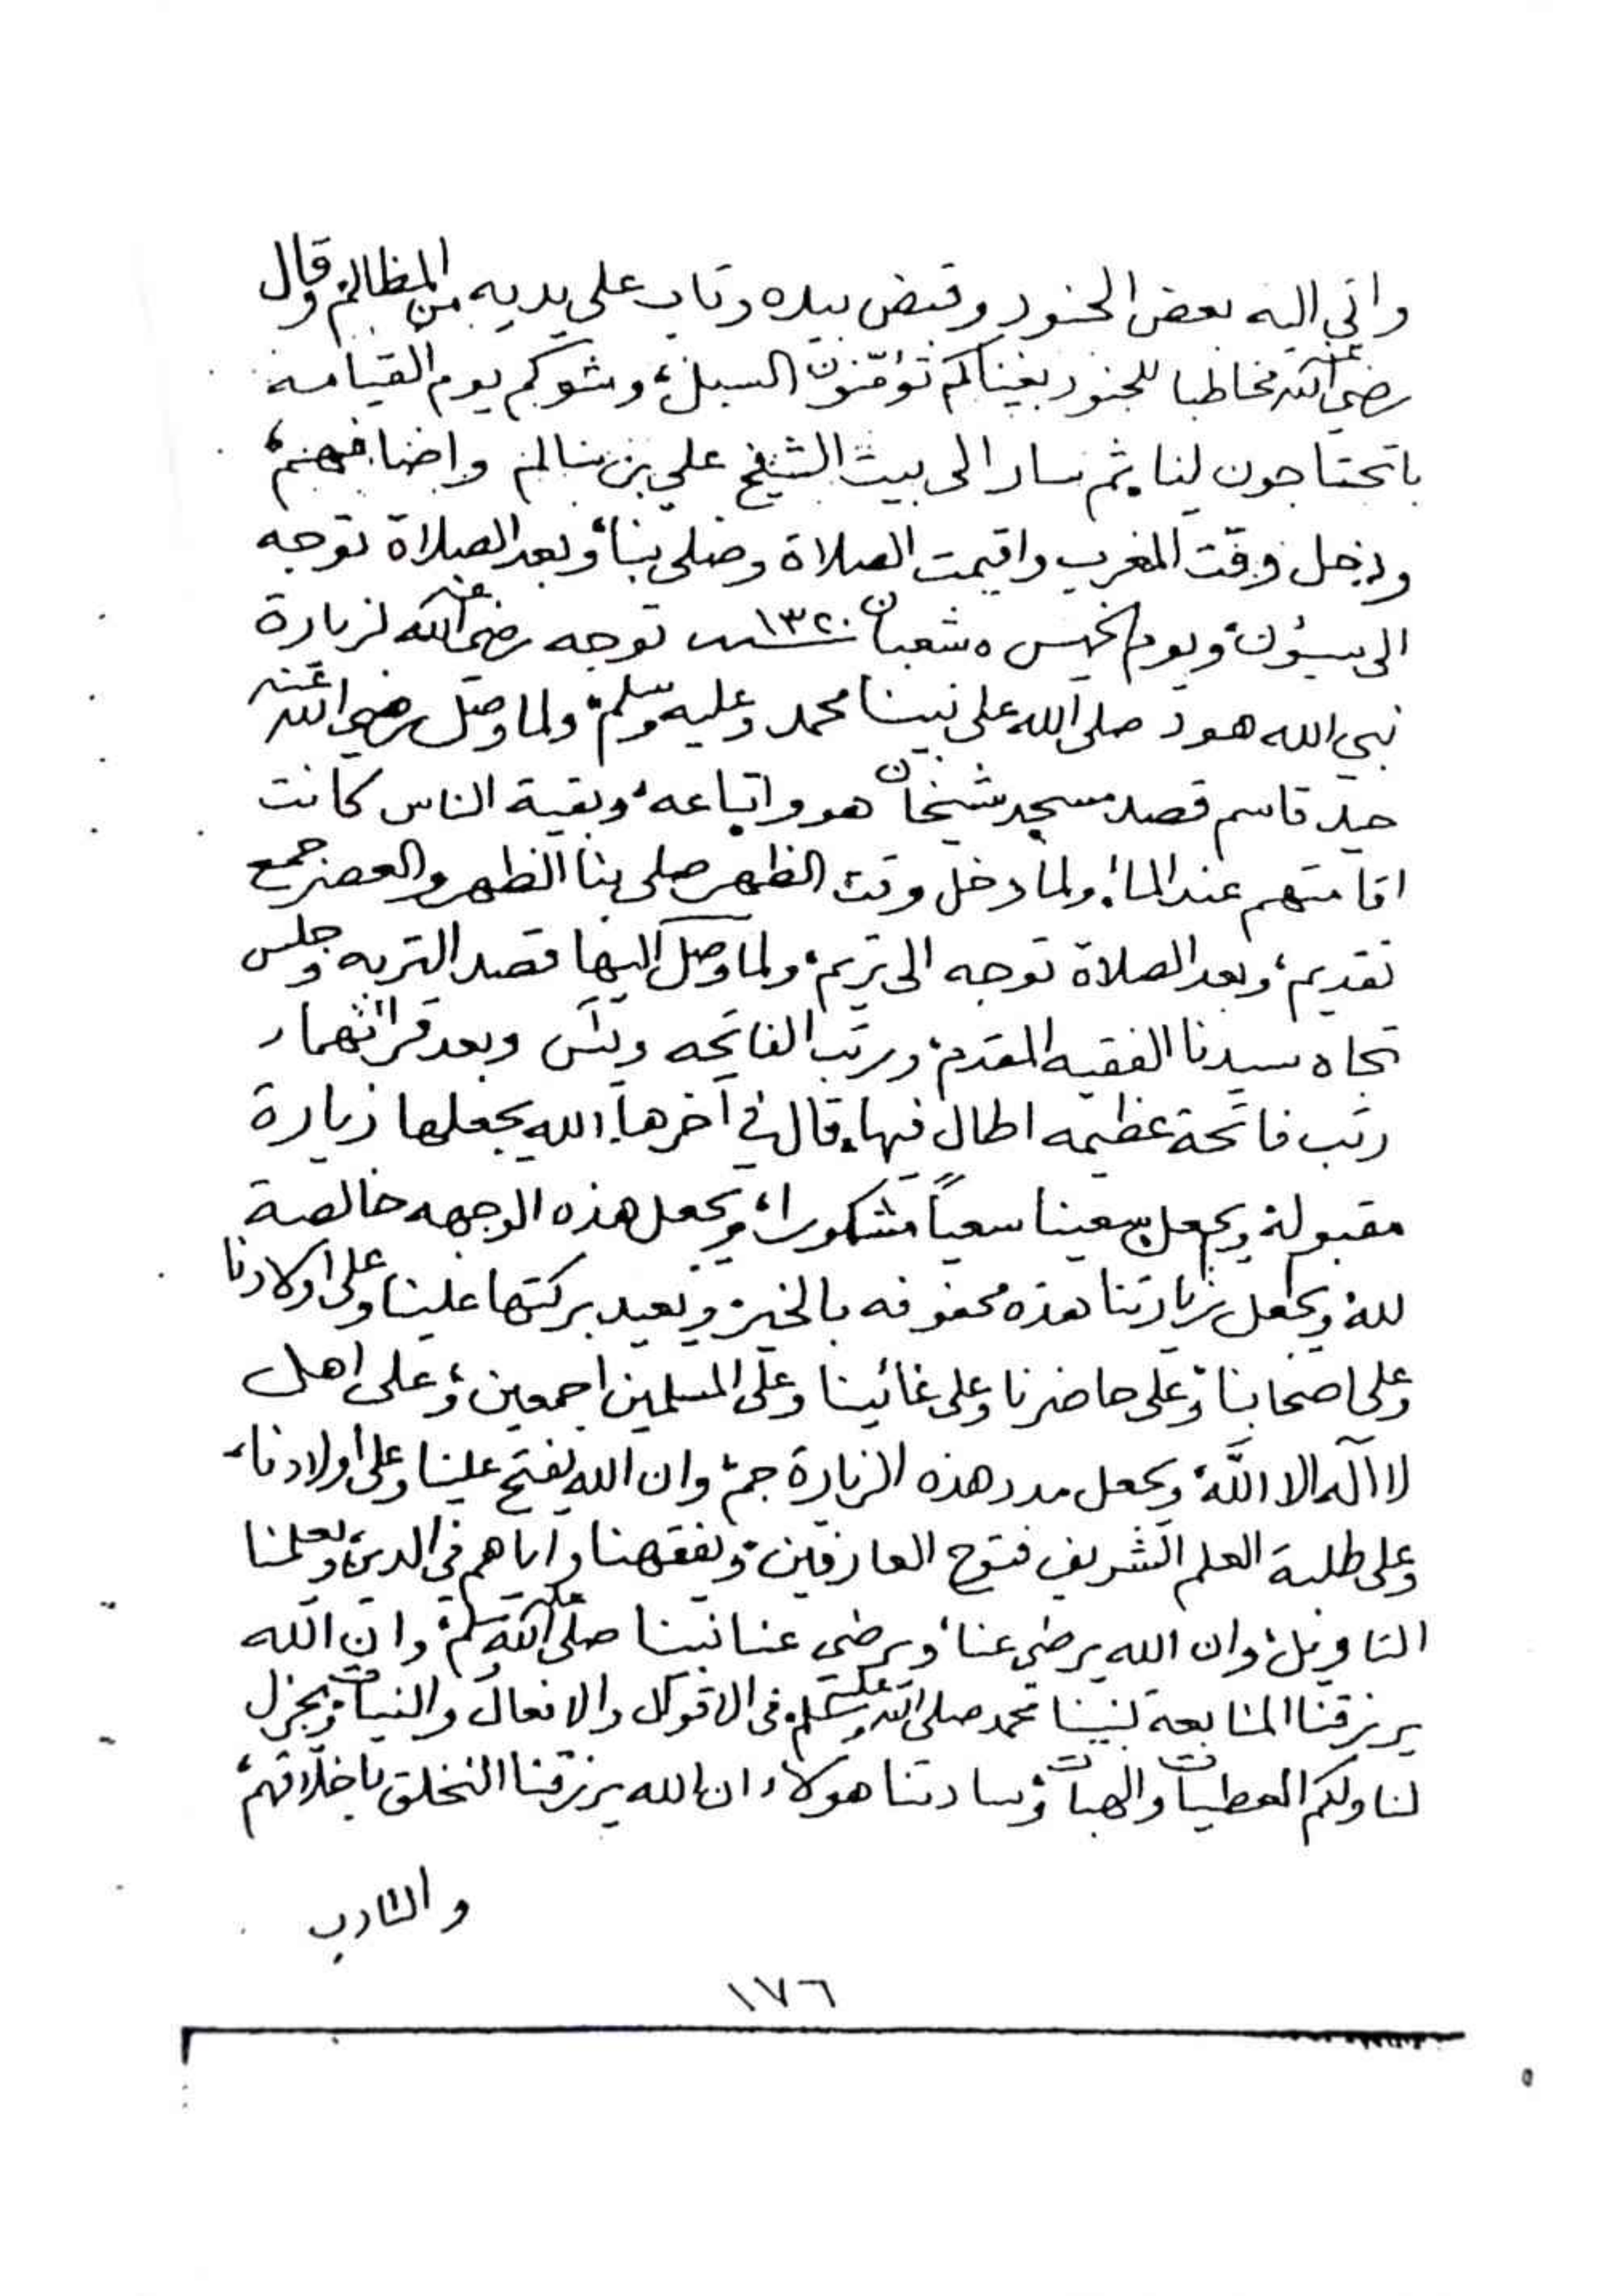 واتى اليه بعض الجنود وقبض بيده وتاب على يديه من المظالم وقال
رضي الله عنه مخاطبا للجنود بغيناكم تؤمّنون السبل، وشوكم يوم القيامه
باتحتاجون لينا، ثم سار الى بيت الشيخ علي بن سالم واضافهم،
ودخل وقت المغرب واقيمت الصلاة وصلى بنا، وبعد الصلاة توجه
الى سيؤن، ويوم الخميس ٥ شعبان سنة ١٣٢٠ توجه رضي الله عنه لزيارة
نبي الله هود صلى الله على نبينا محمد وعليه وسلم، ولما وصل رضي الله عنه
حيد قاسم قصد مسجد شيخان هو واتباعه، وبقية الناس كانت
اقامتهم عند الماء، ولما دخل وقت الظهر صلى بنا الظهر والعصر جمع
تقديم، وبعد الصلاة توجه الى تريم، ولما وصل اليها قصد التربه وجلس
تجاه سيدنا الفقيه المقدم، ورتب الفاتحه ويس وبعد قرائتهما
رتب فاتحة عظيمه اطال فيها، قال في آخرها، الله يجعلها زيارة
مقبولة ويجعل سعينا سعياً مشكورا، ويجعل هذه الوجهه خالصة
لله، ويجعل زيارتنا هذه محفوفه بالخير، ويعيد بركتها علينا وعلى اولادنا
وعلى اصحابنا، وعلى حاضرنا وعلى غائبنا وعلى المسلمين اجمعين، وعلى اهل
لا اله الا الله، ويجعل مدد هذه الزيارة جمّ، وان الله يفتح علينا وعلى اولادنا،
وعلى طلبة العلم الشريف فتوح العارفين، ويفقهنا واياهم في الدين، ويعلمنا
التاويل، وان الله يرضى عنا، ويرضي عنا نبينا صلى الله عليه وسلم، وان الله
يرزقنا المتابعة لنبينا محمد صلى الله عليه وسلم في الاقوال والافعال والنيات، ويجزل
لنا ولكم العطيات والهبات، وسادتنا هولاء ان الله يرزقنا التخلق باخلاقهم،
والتادب
١٧٦